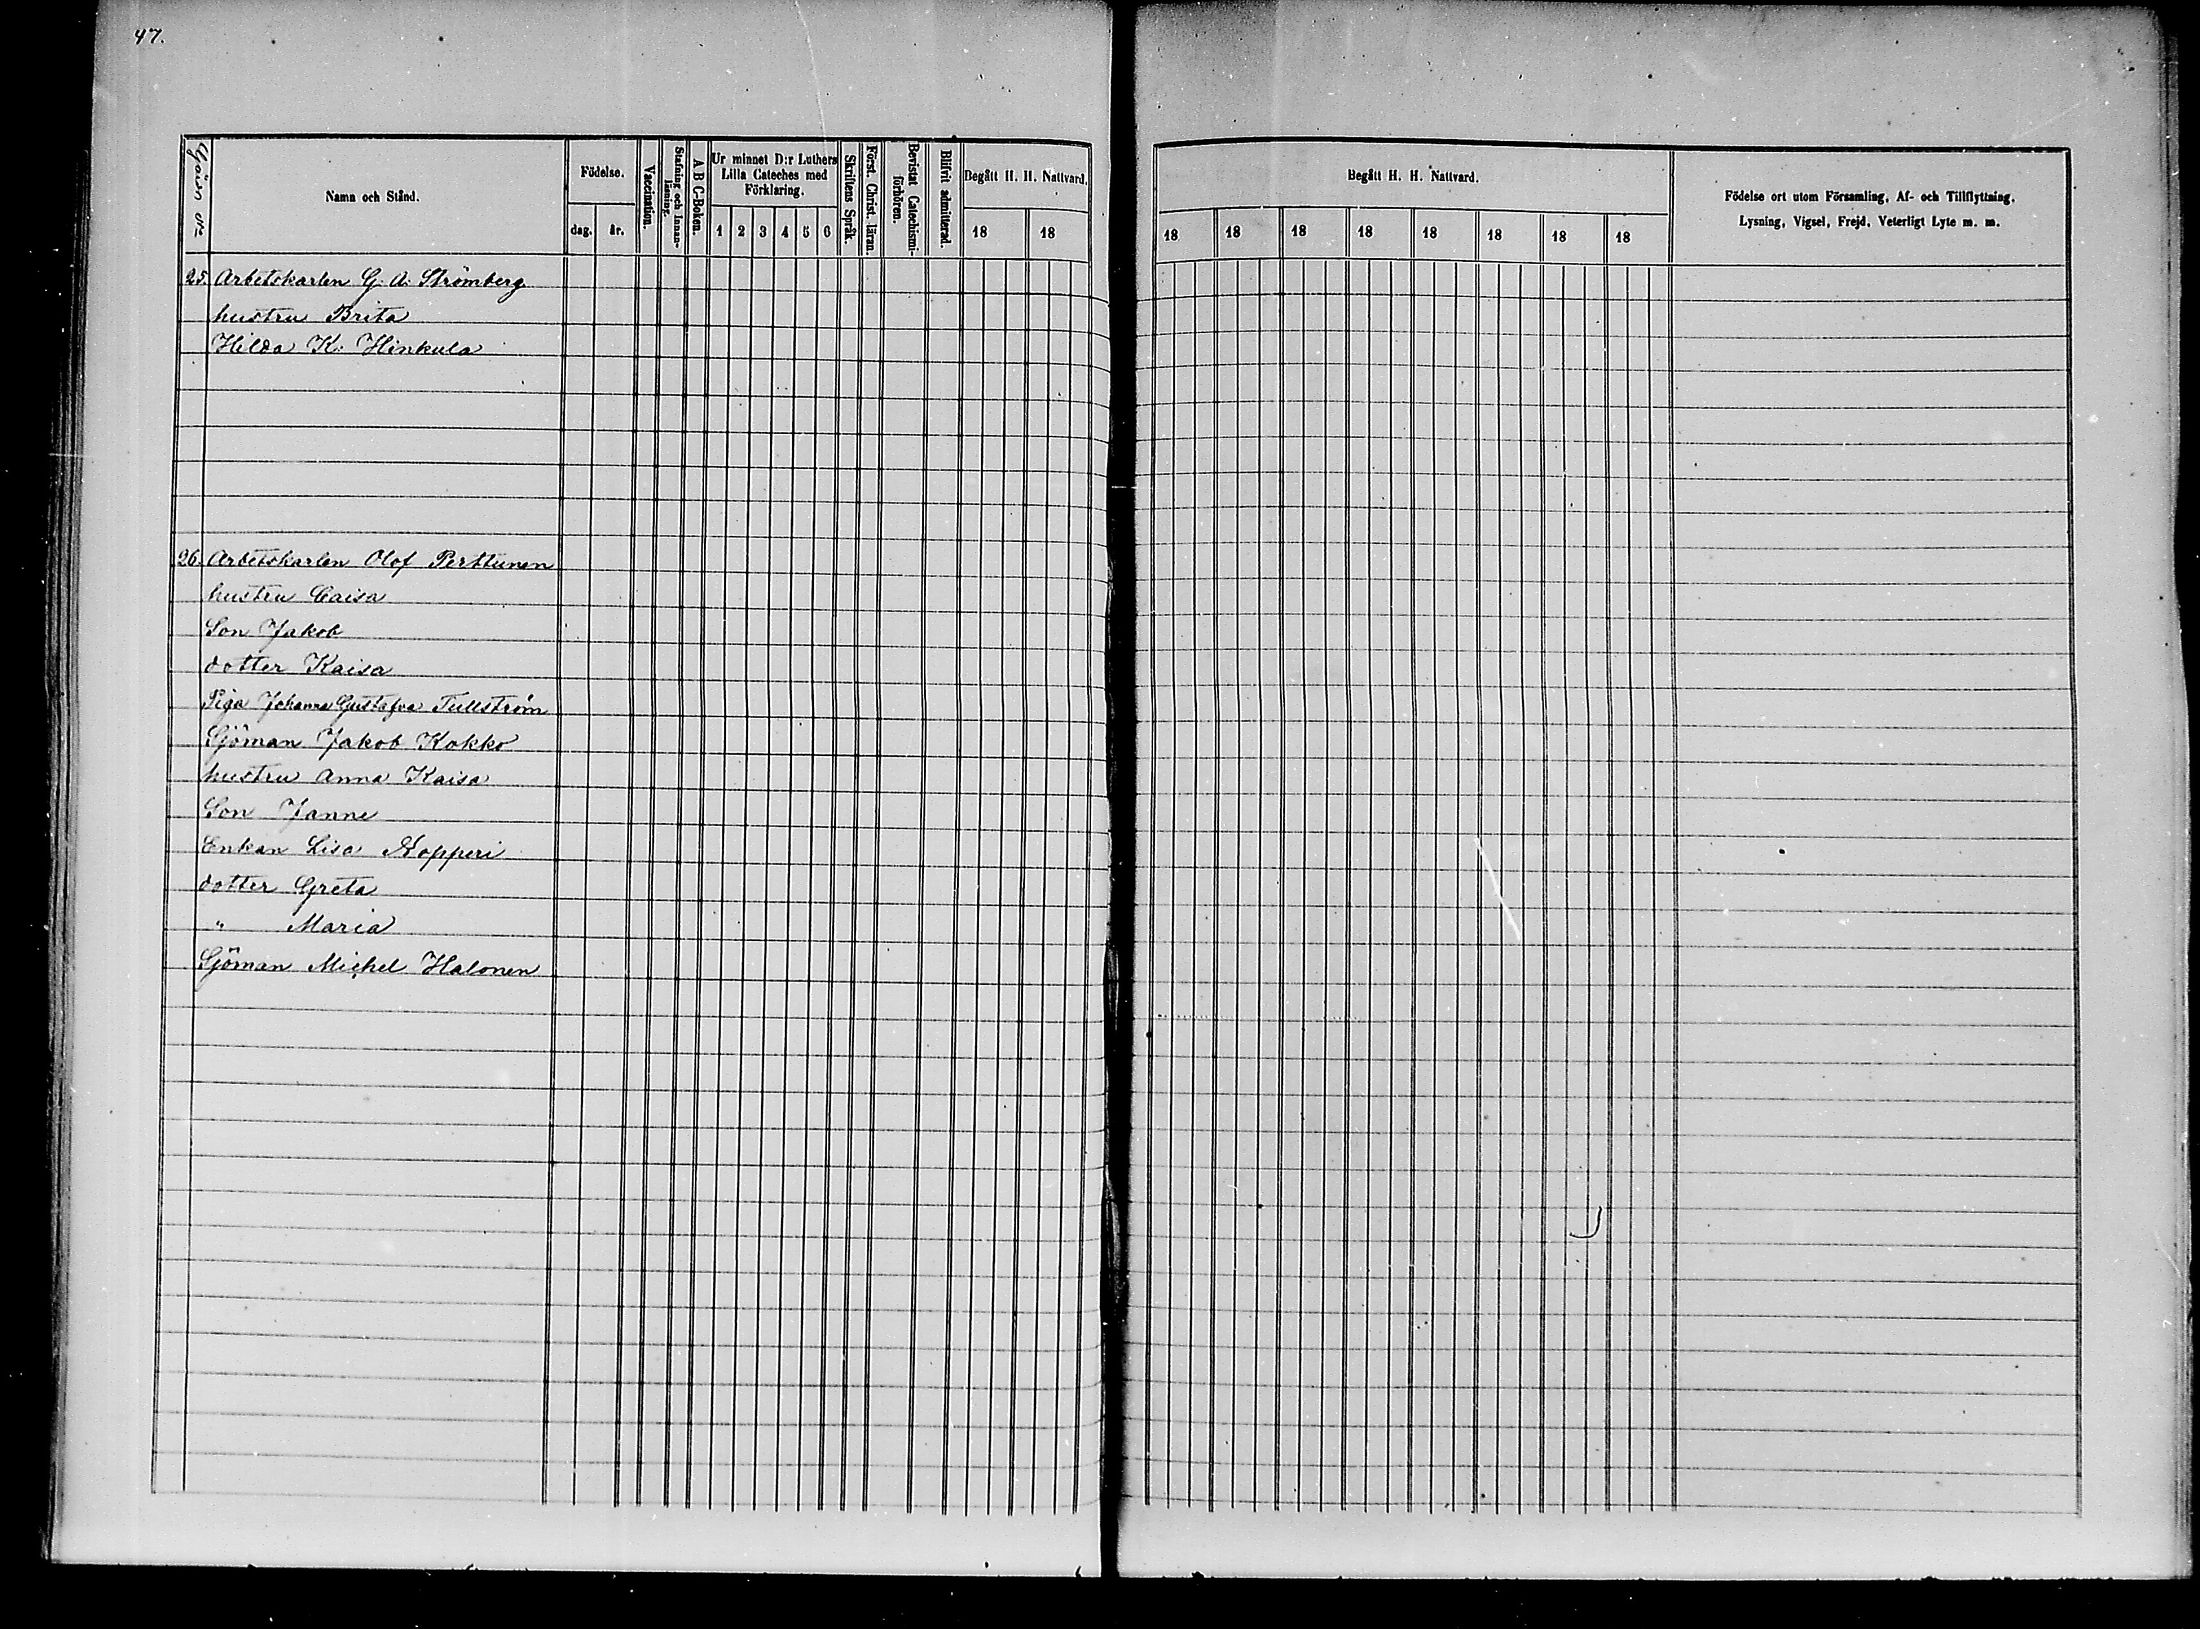 47.
Gård N:o
Namn och Stånd.
Födelse.
dag. år.
Vaccination.
Stafning och Innan-
läsning.
A B C-Boken.
Ur minnet D:r Luthers
Lilla Cateches med
Förklaring.
1 2 3 4 5 6
Skriftens Språk.
Först. Christ. läran.
Bevistat Catechismi-
förhören.
Blifvit admitterad.
Begått H. H. Nattvard.
18 18
Begått H. H. Nattvard.
18 18 18 18 18 18 18 18
Födelse ort utom Församling, Af- och Tillflyttning,
Lysning, Vigsel, Frejd, Veterligt Lyte m. m.
25. Arbetskarlen G. A. Strömberg
hustru Brita
Hilda K. Hinkula
26. Arbetskarlen Olof Perttunen
hustru Caisa
Son Jakob
dotter Kaisa
Piga Johanna Gustafva Tullström
Sjöman Jakob Kokko
hustru Anna Kaisa
Son Janne
Enkan Lisa Nopperi
dotter Greta
" Maria
Sjöman Michel Halonen